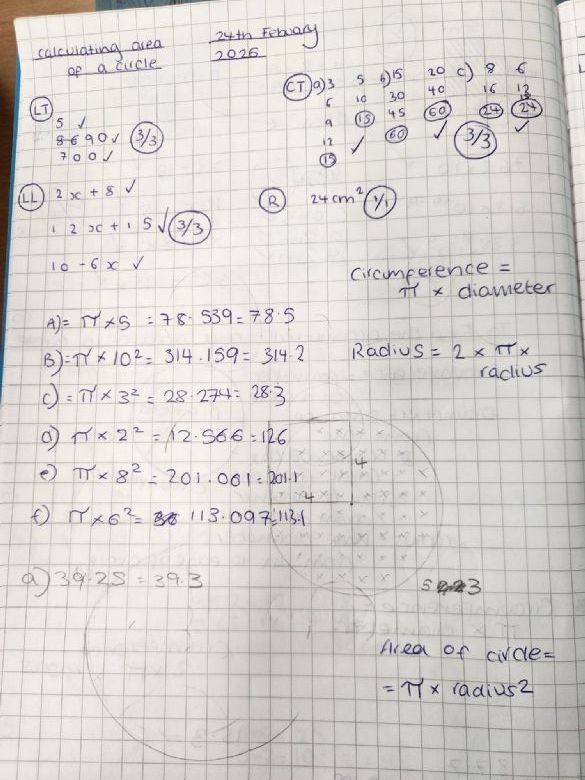 calculating area
of a circle
24th Febuary
2026
LT
5 ✓
8690 ✓
700 ✓
3/3
CT a) 3 5 b) 15 20 c) 8 6
6 10 30 40 16 12
9 15 45 60 24 24
12 ✓ 60 ✓ 3/3 ✓
15
LL 2x + 8 ✓
12x + 15 ✓ 3/3
10 - 6x ✓
R 24cm² 1/1
Circumference =
π × diameter
Radius = 2 × π ×
radius
A) = π × 5 = 78.539 = 78.5
B) = π × 10² = 314.159 = 314.2
C) = π × 3² = 28.274 = 28.3
d) π × 2² = 12.566 = 126
e) π × 8² = 201.061 = 201.1
f) π × 6² = 113.097 = 113.1
4
4
a) 39.25 = 39.3
Area of circle =
= π × radius2